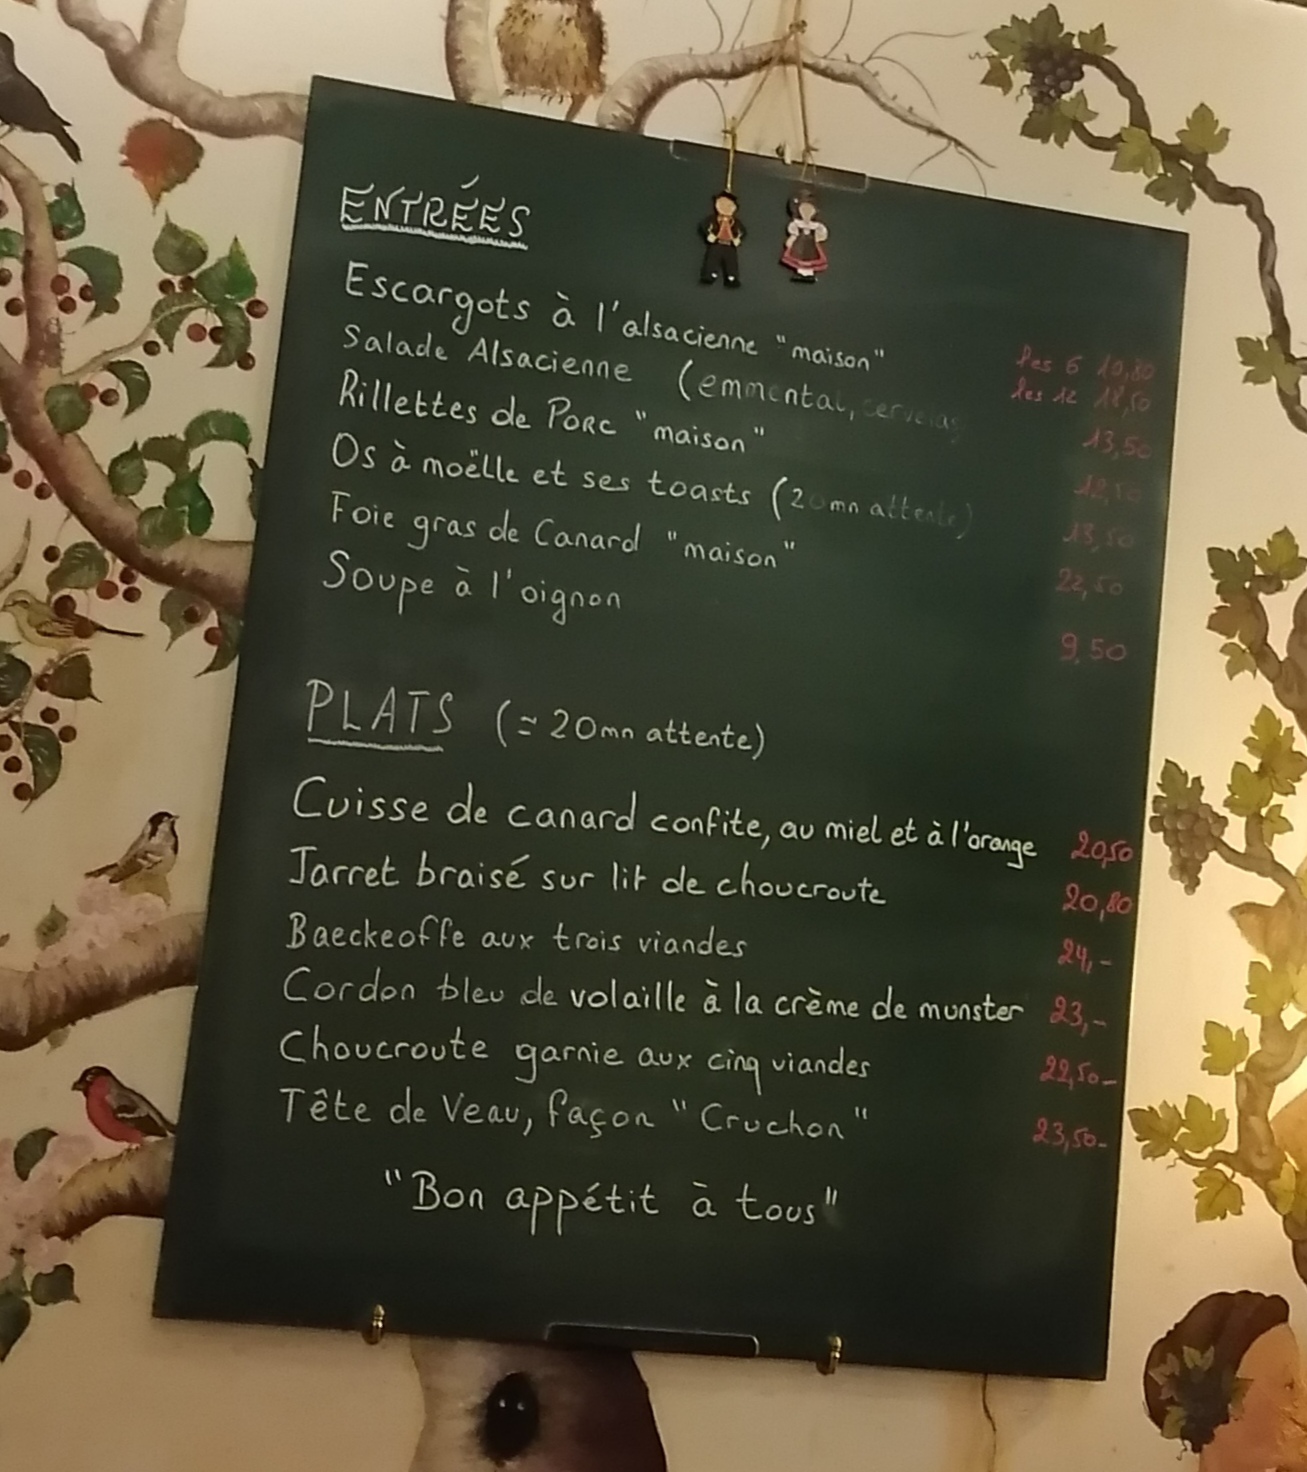 ENTRÉES
Escargots à l'alsacienne "maison" les 6 10,80
les 12 18,50
Salade Alsacienne (emmental, cervelas 13,50
Rillettes de Porc "maison"
Os à moëlle et ses toasts (20mn attente) 13,50
Foie gras de Canard "maison" 22,50
Soupe à l'oignon 9,50
PLATS (≃ 20mn attente)
Cuisse de canard confite, au miel et à l'orange 20,50
Jarret braisé sur lit de choucroute 20,80
Baeckeoffe aux trois viandes 24,-
Cordon bleu de volaille à la crème de munster 23,-
Choucroute garnie aux cinq viandes 22,50-
Tête de Veau, façon "Cruchon" 23,50-
"Bon appétit à tous"